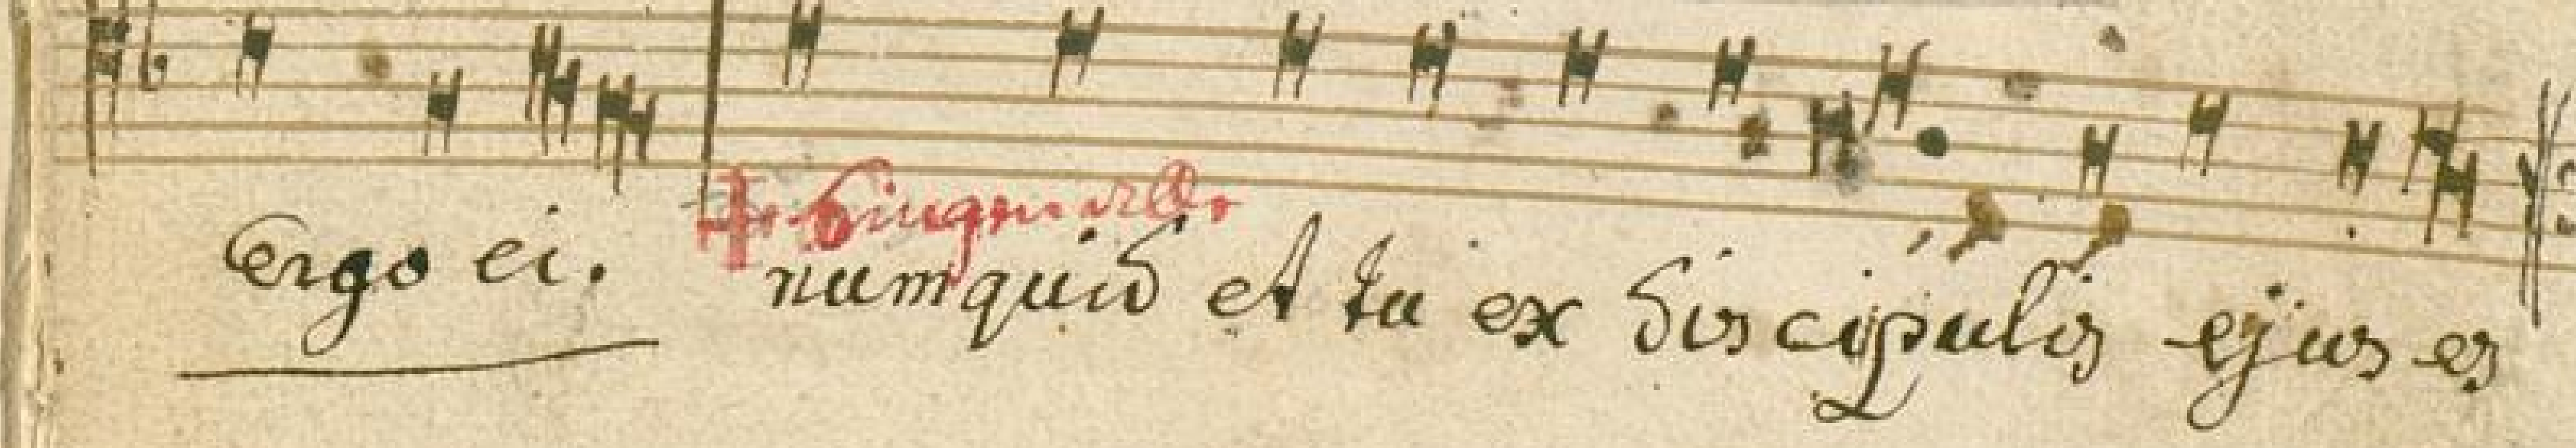 ergo ei. numquid et tu ex discipulis ejus es